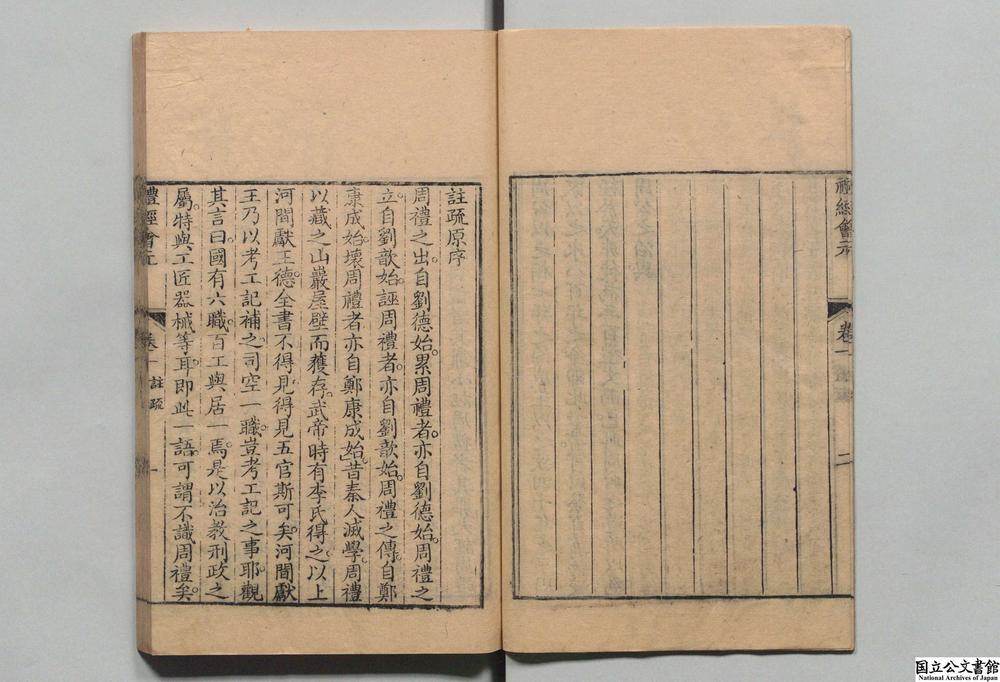 禮經會元
卷一
二
註疏原序
周禮之出自劉德始累周禮者亦自劉德始周禮之
立自劉歆始誣周禮者亦自劉歆始周禮之傳自鄭
康成始壞周禮者亦自鄭康成始昔秦人滅學周禮
以藏之山巖屋壁而獲存武帝時有李氏得之以上
河間獻王德全書不得見得見五官斯可矣河間獻
王乃以考工記補之司空一職豈考工記之事耶觀
其言曰國有六職百工與居一焉是以治教刑政之
屬特與工匠器械等耳即此一語可謂不識周禮矣
禮經會元
卷一
註疏
一
国立公文書館
National Archives of Japan